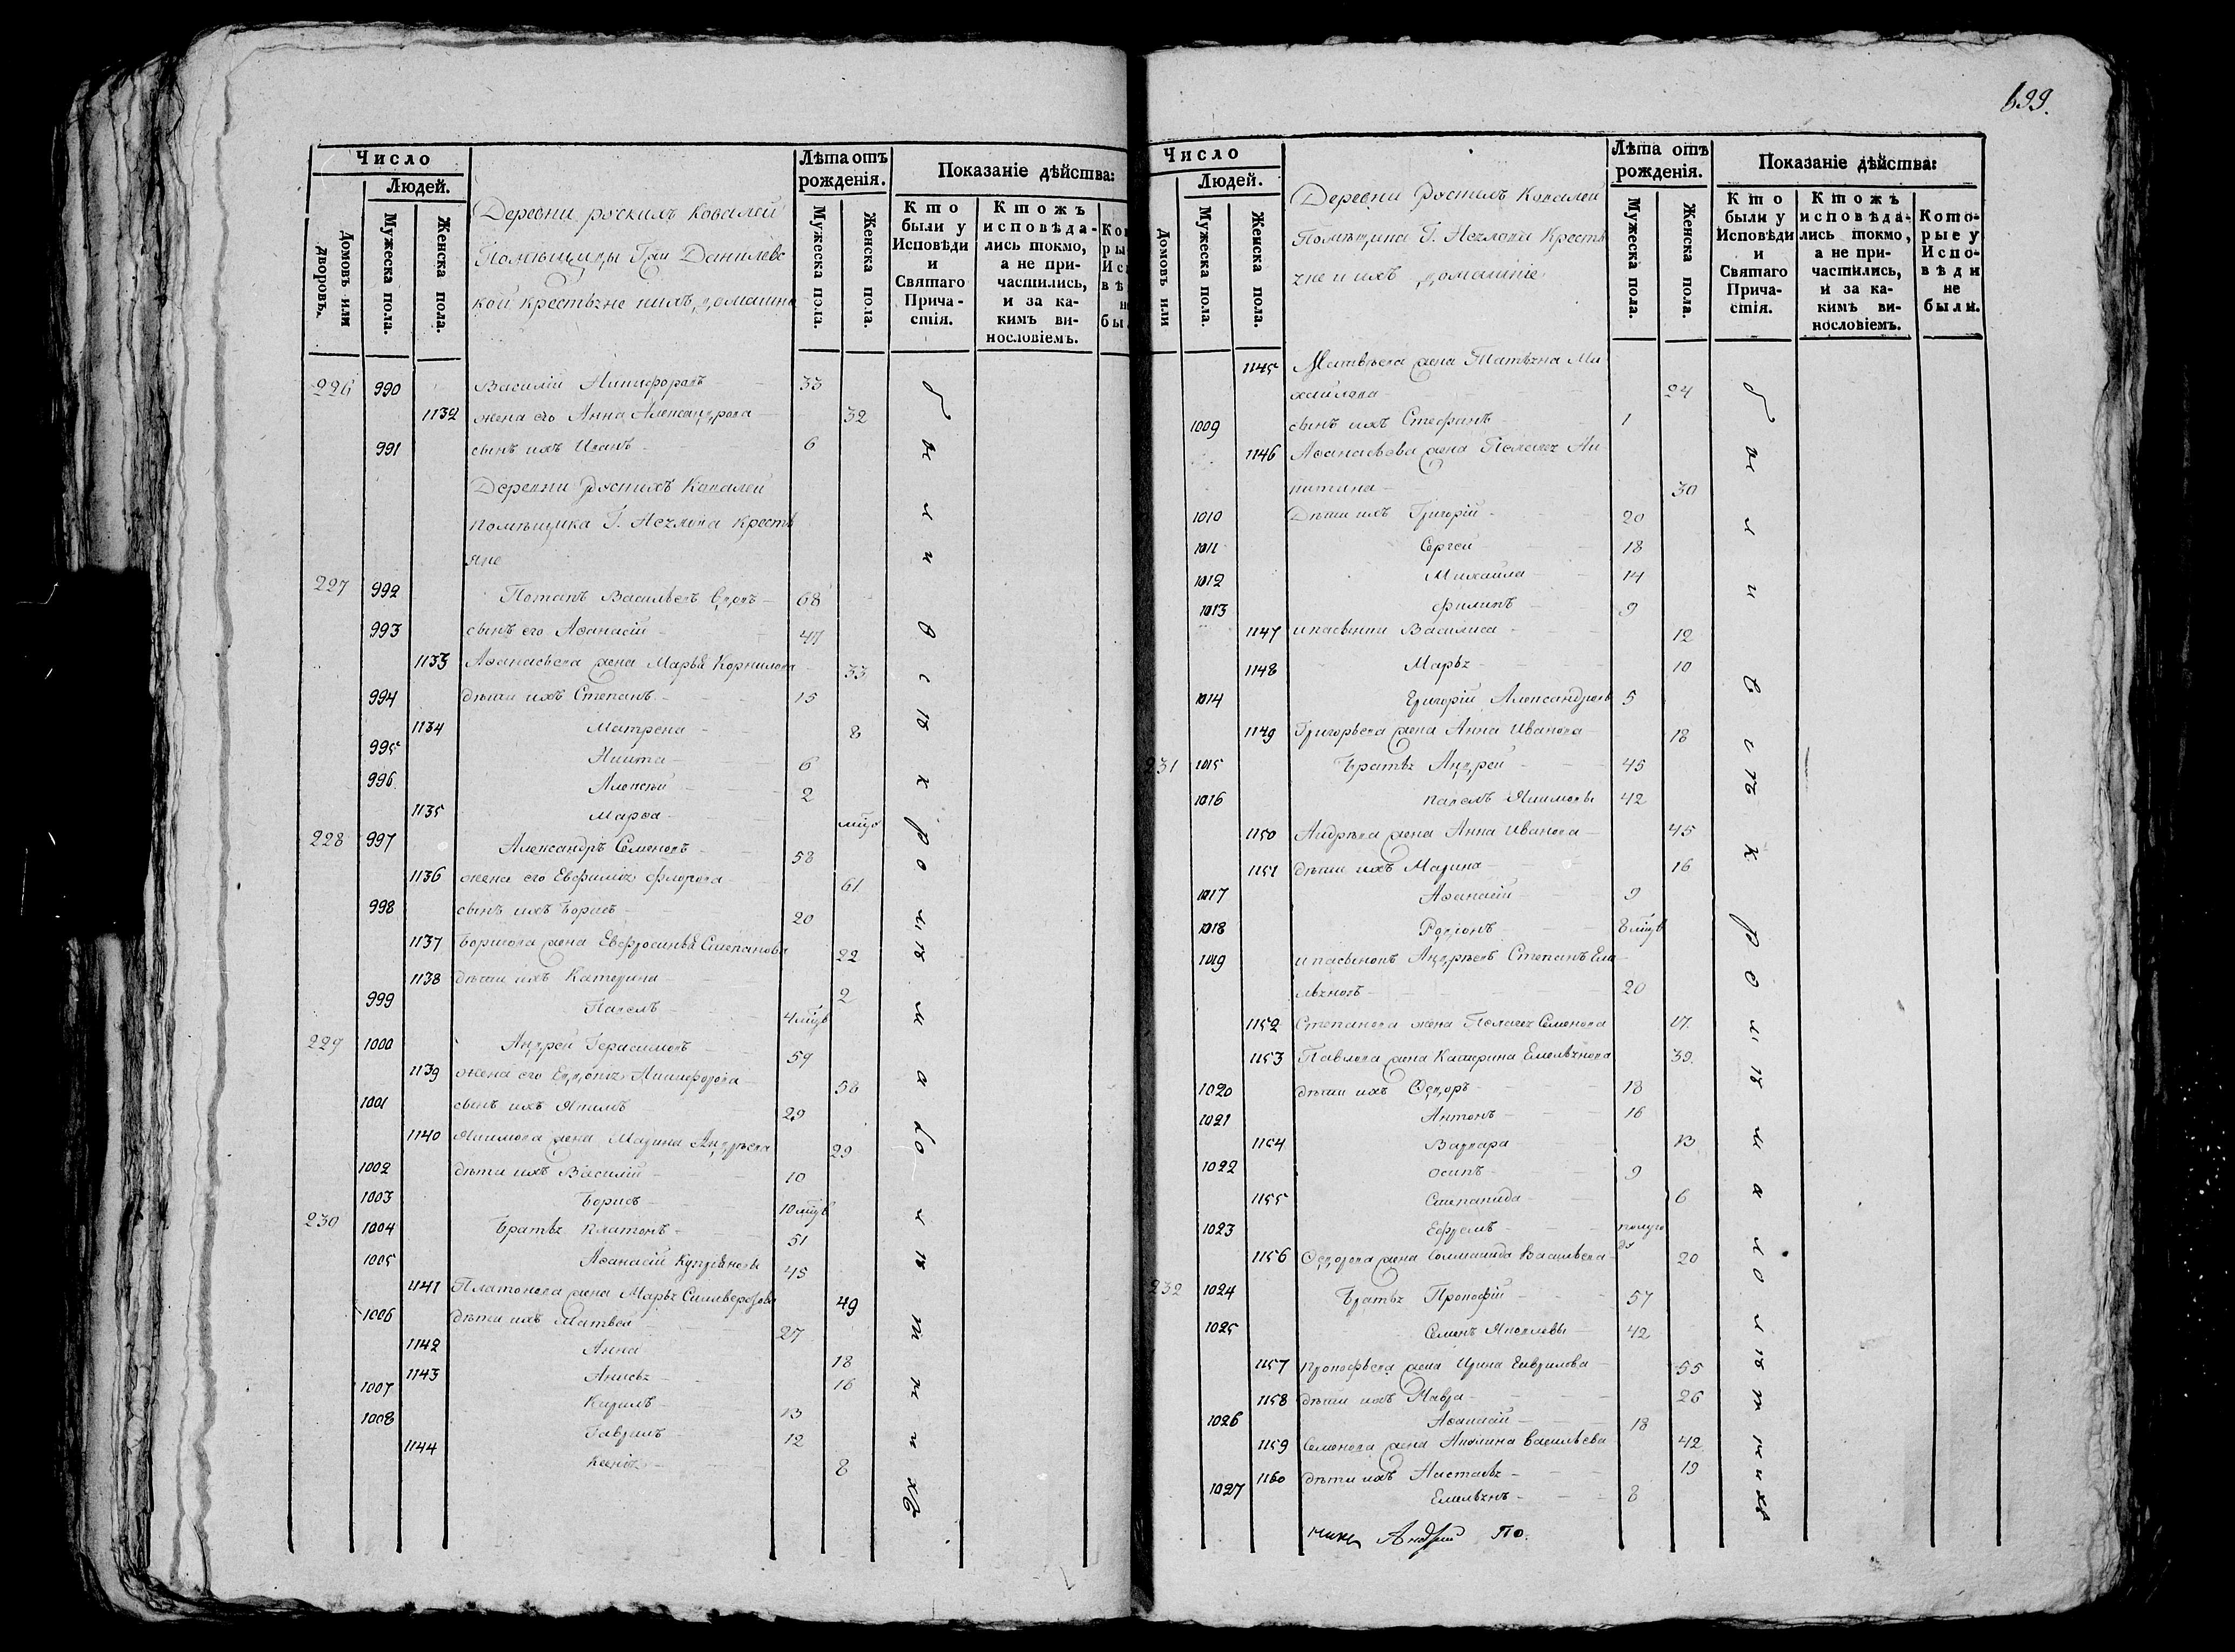 Число
Людей.
Домовъ или дворовъ.
Мужеска пола.
Женска пола.
Деревни рускихъ Ковалей
Помѣщицы Гжи Данилевс
кой крестьяне ихъ домашни
Лѣта отъ рожденія.
Мужеска пола.
Женска пола.
Показаніе дѣйства:
Кто были у Исповѣди и Святаго Причастія.
Ктожъ исповѣдались токмо, а не причастились, и за какимъ винословіемъ.
226 990 Василій Никифоровъ 33
1132 жена его Анна Александрова 32
991 сынъ ихъ Иванъ 6
Деревни Рускихъ Ковалей
помѣщика Г. Нѣелова кресть
яне
227 992 Потапъ Васильевъ вдовъ 68
993 сынъ его Аѳанасій 47
1133 Аѳанасьева жена Марья Корнилова 33
994 дѣти ихъ Степанъ 15
1134 Матрена 8
995 Никита 6
996 Алексѣй 2
1135 Марѳа
228 997 Александръ Семеновъ 58
1136 жена его Евфимія Флорова 61
998 сынъ ихъ Борисъ 20
1137 Борисова жена Евфросинья Степанова 22
1138 дѣти ихъ Катерина 2
999 Павелъ 4 мцв
229 1000 Андрей Герасимовъ 59
1139 жена его Евдокія Никифорова 58
1001 сынъ ихъ Якимъ 29
1140 Якимова жена Марина Андрѣева 29
1002 дѣти ихъ Василій 10
1003 Борисъ 10 мцв
230 1004 Братья Платонъ 51
1005 Аѳанасій Купріяновы 45
1141 Платонова жена Марья Силиверстова 49
1006 дѣти ихъ Матвей 27
1142 Анна 18
1143 Анисья 16
1007 Карилъ 13
1008 Гаврилъ 12
1144 Ксенія 8
были в с ѣ х
699.
Число
Людей.
Домовъ или
Мужеска пола.
Женска пола.
Деревни Рускихъ Ковалей
Помѣщика Г. Нѣелова Кресть
яне и ихъ домашніе
Лѣта отъ рожденія.
Мужеска пола.
Женска пола.
Показаніе дѣйства:
Кто были у Исповѣди и Святаго Причастія.
Ктожъ исповѣдались токмо, а не причастились, и за какимъ винословіемъ.
Которые у Исповѣди не были.
1145 Матвѣева жена Татьяна Ми
хайлова 24
1009 сынъ ихъ Стефанъ 1
1146 Аѳанасьева жена Пелагея Ни
китина 30
1010 Дѣти ихъ Григорій 20
1011 Сергей 18
1012 Михайла 14
1013 Филипъ 9
1147 Василиса 12
1148 Марья 10
1014 Григорій Александровъ 5
1149 Григорьева жена Анна Иванова 18
231 1015 Братья Андрей 45
1016 Павелъ Якимовы 42
1150 Андрѣева жена Анна Иванова 45
1151 дѣти ихъ Марина 16
1017 Аѳанасій 9
1018 Родіонъ 8 мцв
1019 и пасынокъ Андрѣевъ Степанъ Еме
льяновъ 20
1152 Степанова жена Пелагея Семенова 17.
1153 Павлова жена Катерина Емельянова 39.
1020 дѣти ихъ Ѳедоръ 18
1021 Антонъ 16
1154 Варвара 13
1022 Осипъ 9
1155 Степанида 6
1023 Ефремъ полуго
да
1156 Ѳедорова жена Соломанида Васильева 20
232 1024 Братья Прокофій 57
1025 Семенъ Яковлевы 42
1157 Прокофьева жена Ирина Гаврилова 55
1158 дѣти ихъ Мавра 26
1026 Аѳанасій 18
1159 Семенова жена Акилина Васильева 42
1160 дѣти ихъ Настасья 19
1027 Емельянъ 8
Андрей По.